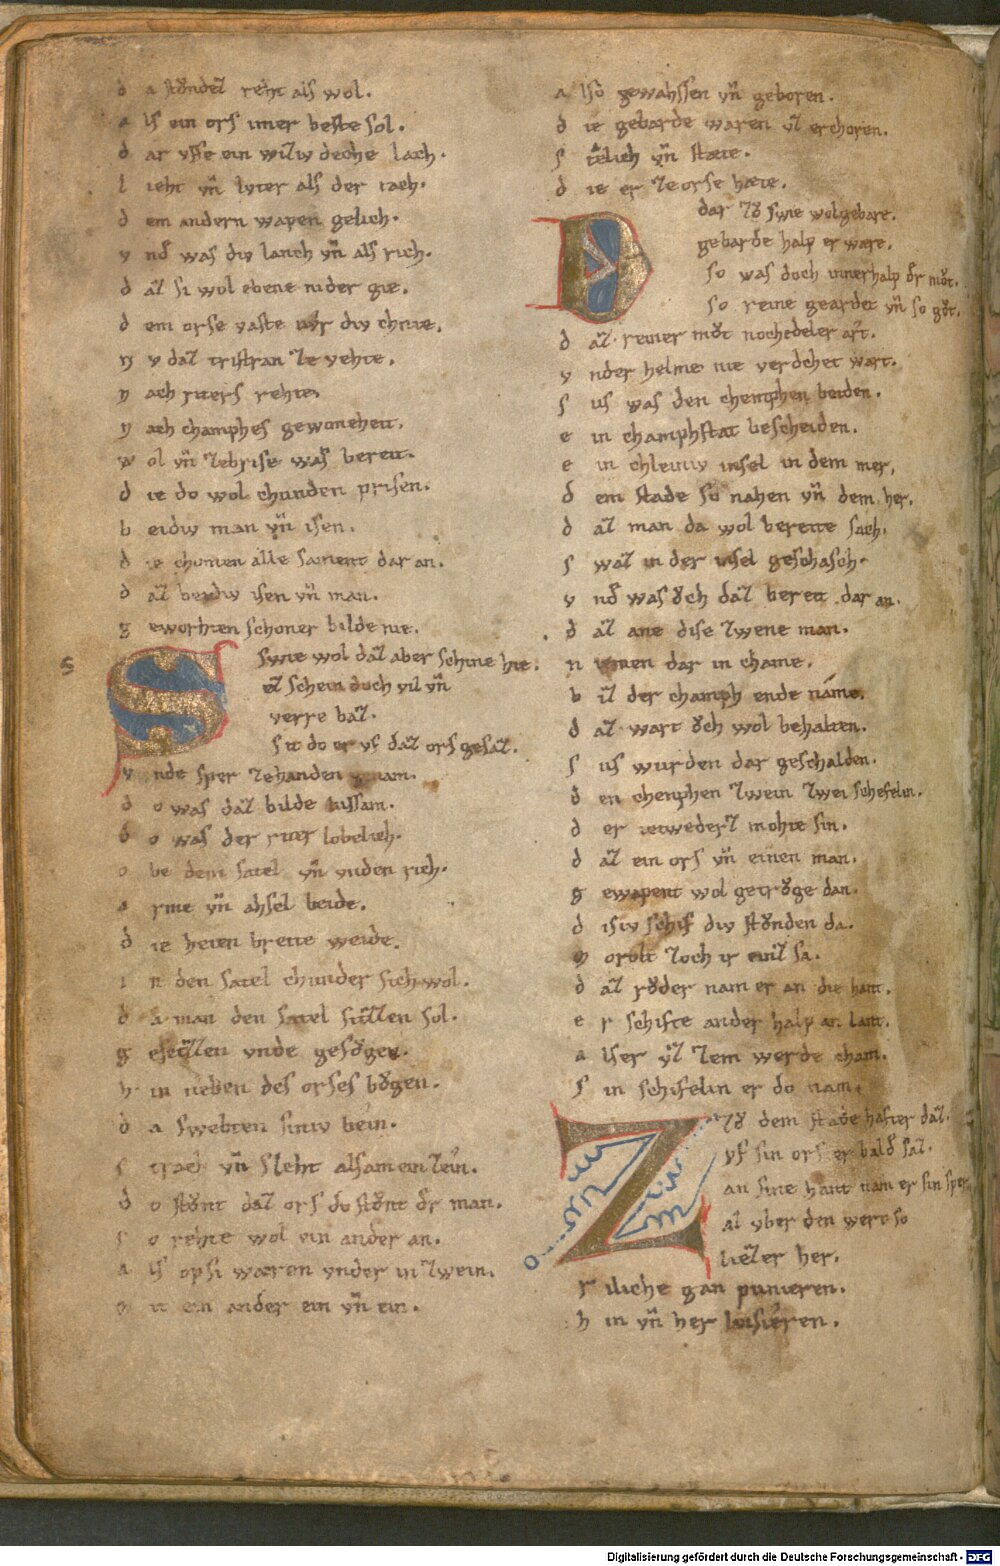 d a stůndez reht als wol.
a ls ein ors imer beste sol.
d ar vffe ein wiziv deche lach.
l ieht vñ lvter als der tach.
d em andern wapen gelich.
v nd was div lanch vñ als rich.
d az si wol ebene nider gie.
d em orse vaste vbir div chnie.
n v daz tristran ze vehte.
n ach riters rehte.
n ach champhes gewoneheit.
w ol vñ zebrise was bereit.
d ie do wol chunden prisen.
b eidiv man vñ isen.
d ie chomen alle sament dar an.
d az beidiv isen vñ man.
g eworhten schoner bilde nie.
S swie wol daz aber schine hie.
ez schein doch vil vñ
verre baz.
sit do er vf daz ors gesaz.
v nde sper zehanden genam.
d o was daz bilde lussam.
d o was der riter lobelich.
o be dem satel vñ vnden rich.
a rme vñ ahsel beide.
d ie heten breite weide.
i n den satel chunder sich wol.
d a man den satel sitzen sol.
g esetzen vnde gefůgen.
h in neben des orses bůgen.
d a swebten siniv bein.
s trach vñ sleht alsam ein zein.
d o stůnt daz ors do stůnt dˢ man.
s o rehte wol ein ander an.
a ls op si wæren vnder in zwein.
m it ein ander ein vñ ein.
a lso gewahssen vñ geboren.
d ie gebarde waren vz erchoren.
s tetlich vñ stæte.
d ie er ze orse hæte.
D dar zů swie wol gebare.
gebarde halp er ware.
so was doch innerhalp dˢ můt.
so reine geardet vñ so gůt.
d az reiner můt noch edeler art.
v nder helme nie verdechet wart.
s us was den chemphen beiden.
e in champhstat bescheiden.
e in chleiniv insel in dem mer.
d em stade so nahen vñ dem her.
d az man da wol bereite sach.
s waz in der insel geschasch.
v nd was ůch daz beret dar an.
d az ane dise zwene man.
n iemen dar in chame.
b iz der champh ende name.
d az wart ůch wol behalten.
s us wurden dar geschalden.
d en chenphen zwein zwei schefelin.
d er ietwederz mohte sin.
d az ein ors vñ einen man.
g ewapent wol getrůge dan.
d isiv schif div stůnden da.
m orolt zoch ir einz sa.
d az růder nam er an die hant.
e r schifte ander halp an lant.
a lser vz zem werde cham.
s in schifelin er do nam.
Z zů dem stade hafter daz.
vf sin ors er bald saz.
an sine hant nam er sin sper
al vber den wert so
liezer her.
r iliche gan punieren.
h in vñ her leisieren.
S
Digitalisierung gefördert durch die Deutsche Forschungsgemeinschaft - DFG